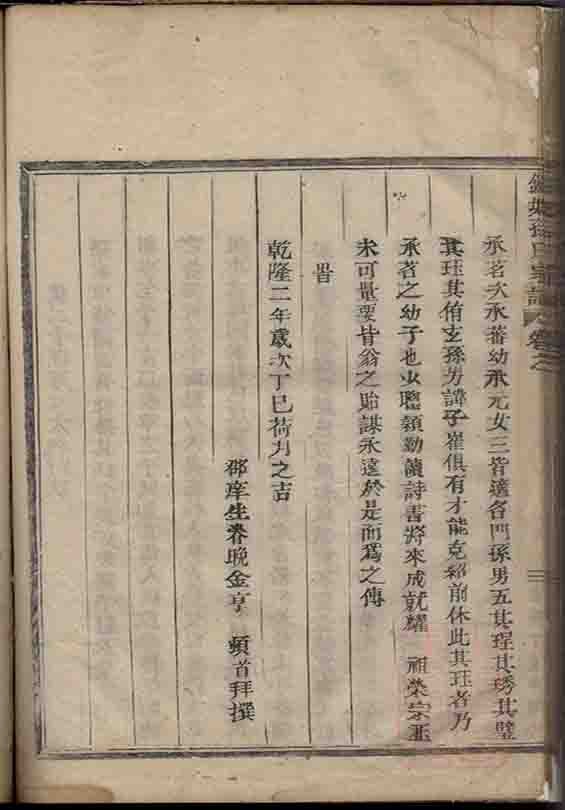 氏宗譜 卷之
承茗次承蕃幼承元女三皆適名門孫男五其珵其琇其璧
其珏其侑玄孫男諱子崔俱有才能克紹前休此其珏者乃
承茗之幼子也少聰穎勤讀詩書將來成就耀 祖榮宗並
未可量要皆翁之貽謀永遠於是而爲之傳
旹
乾隆二年歲次丁巳荷月之吉
郡庠生眷晚金亨 頓首拜撰